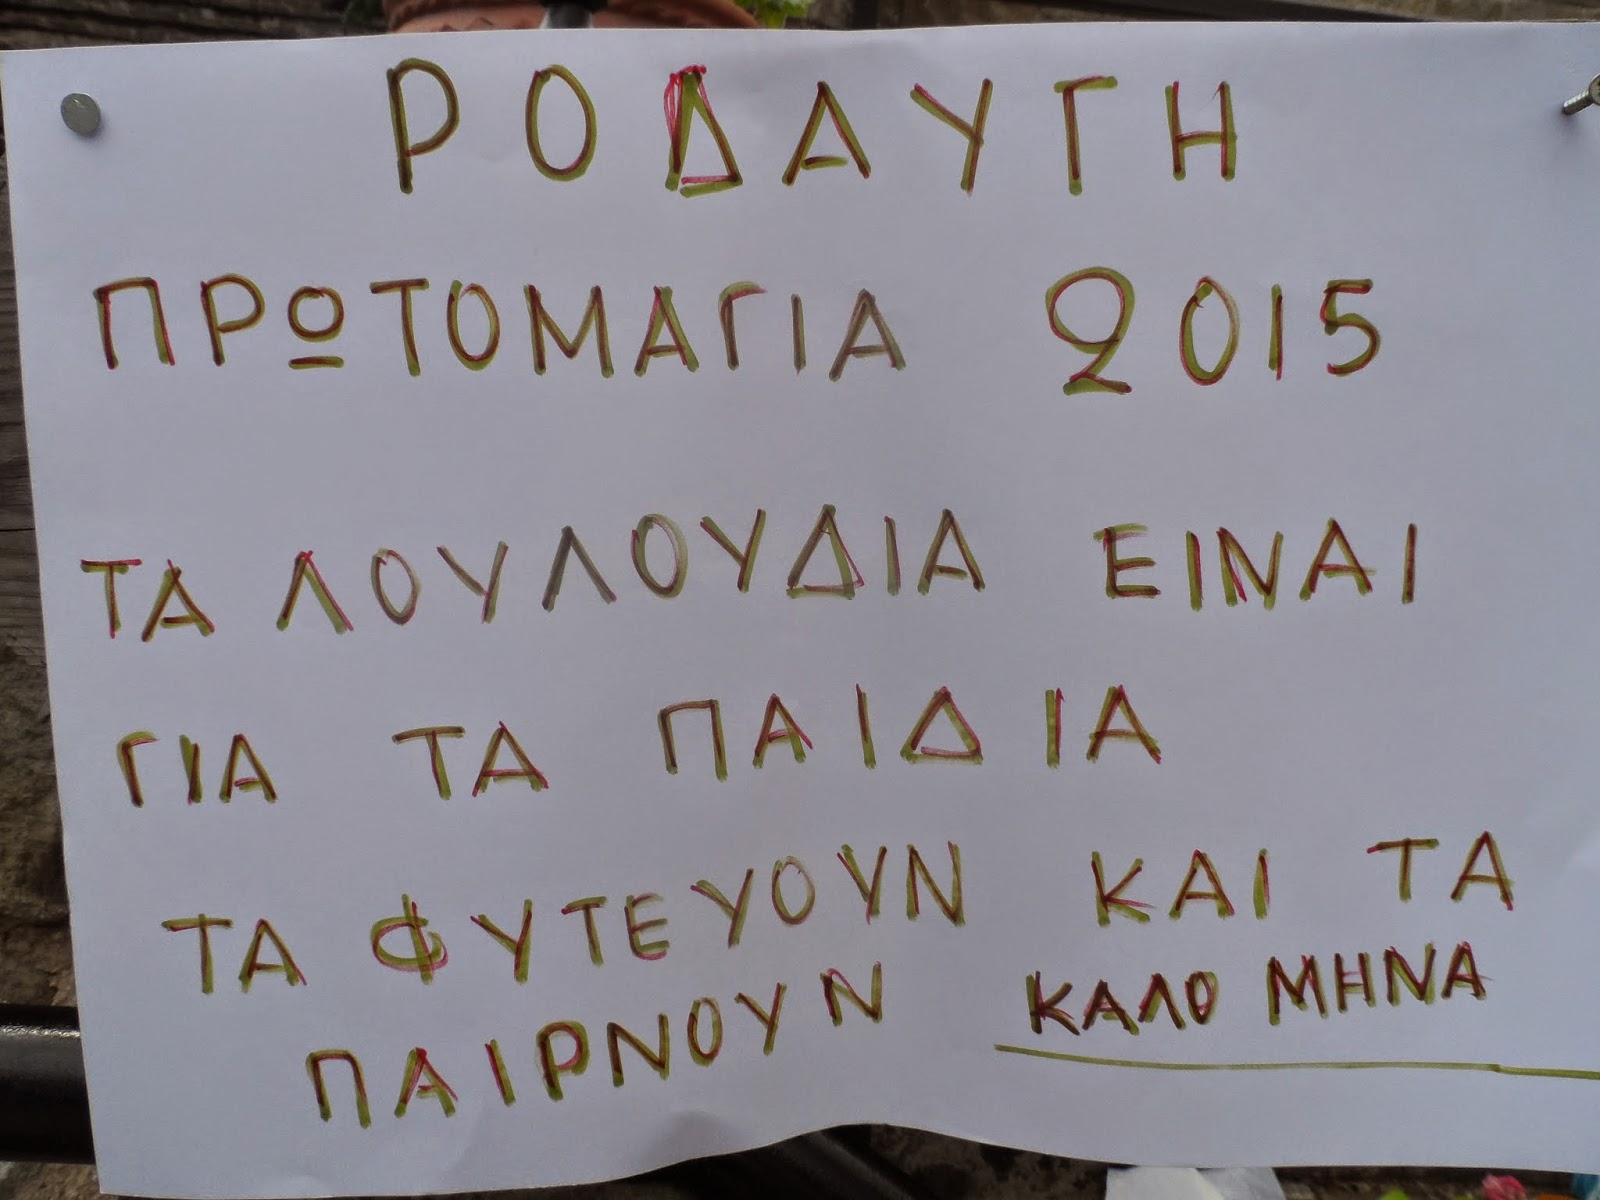 ΡΟΔΑΥΓΗ
ΠΡΩΤΟΜΑΓΙΑ 2015
ΤΑ ΛΟΥΛΟΥΔΙΑ ΕΙΝΑΙ
ΓΙΑ ΤΑ ΠΑΙΔΙΑ
ΤΑ ΦΥΤΕΥΟΥΝ ΚΑΙ ΤΑ
ΠΑΙΡΝΟΥΝ ΚΑΛΟ ΜΗΝΑ